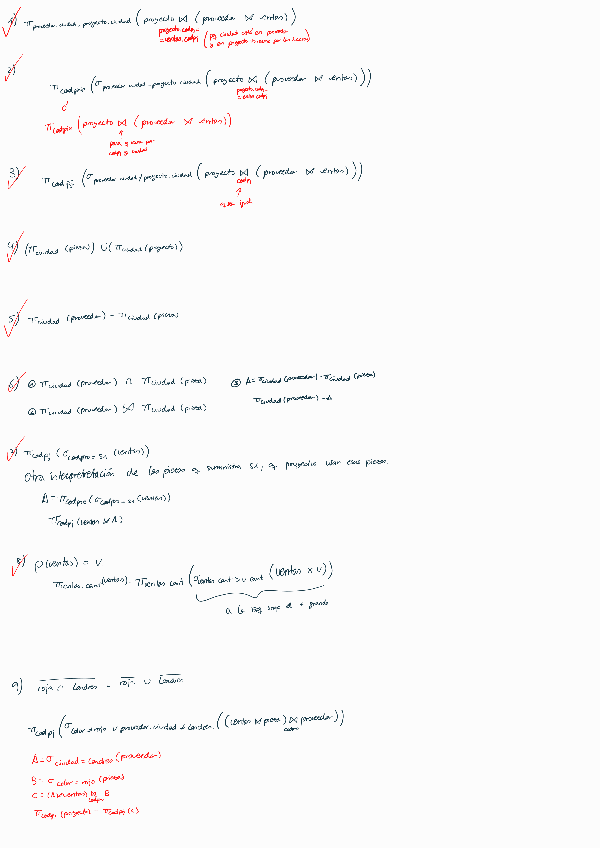 1) π proveedor.ciudad, proyecto.ciudad (proyecto ⋈ (proveedor ⋈ ventas))
proyecto.codpj = ventas.codpj (pq ciudad está en proveedor y en proyecto
2) π codpie (σ proveedor.ciudad = proyecto.ciudad (proyecto ⋈ (proveedor ⋈ ventas)))
proyecto.codpj = ventas.codpj
π codpie (proyecto ⋈ (proveedor ⋈ ventas))
para q una por codpj y ciudad
3) π codpj (σ proveedor.ciudad ≠ proyecto.ciudad (proyecto ⋈ (proveedor ⋈ ventas)))
codpj
4) (π ciudad (pieza)) ∪ (π ciudad (proyecto))
5) π ciudad (proveedor) - π ciudad (pieza)
6) ① π ciudad (proveedor) ∩ π ciudad (pieza) ③ A = π ciudad (proveedor) - π ciudad (pieza)
π ciudad (proveedor) - A
② π ciudad (proveedor) ⋈ π ciudad (pieza)
7) π codpj (σ codpro = S1 (ventas))
Otra interpretación de las piezas q suministra S1, q proyectos usan esas piezas.
A = π codpie (σ codpro = S1 (ventas))
π codpj (ventas ⋈ A)
8) ρ(ventas) = V
π ventas.cant (ventas) - π ventas.cant (σ ventas.cant > v.cant (ventas × v))
9) roja ∩ Londres = roja ∪ Londres
π codpj (σ color ≠ rojo ∨ proveedor.ciudad ≠ Londres ((ventas ⋈ pieza) ⋈ proveedor))
A = σ ciudad = Londres (proveedor)
B = σ color = rojo (pieza)
C = (A ⋈ ventas) ⋈ B
π codpj (proyecto) - π codpj (C)